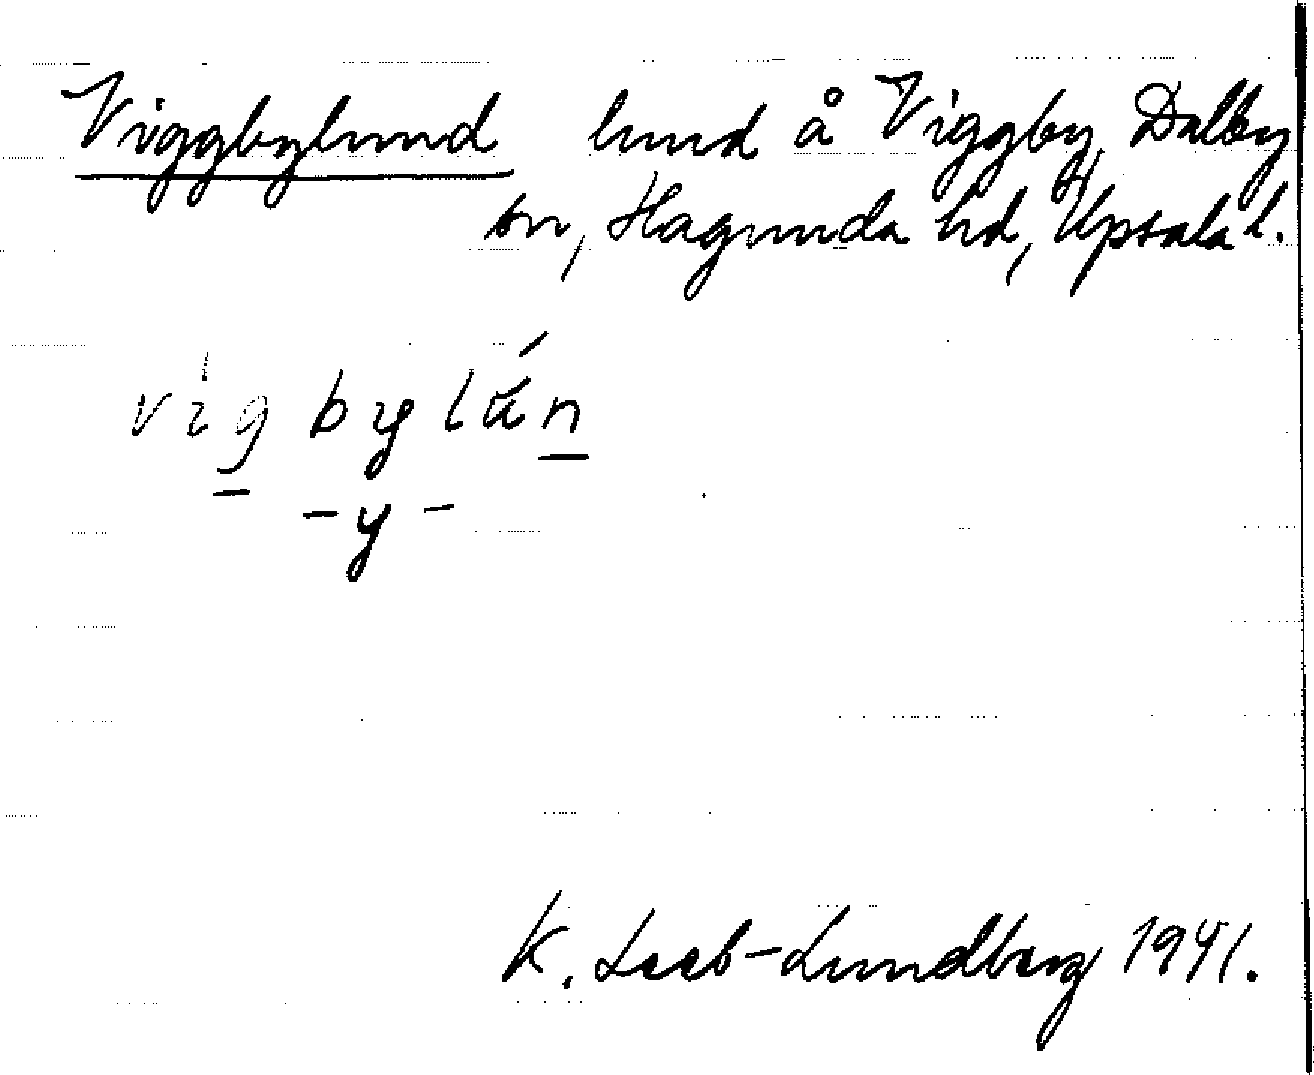 Viggbylund lund å Viggby, Dalby
sn, Hagunda hd, Upsala l.
vigbylán
-y-
K. Leeb-Lundberg 1941.